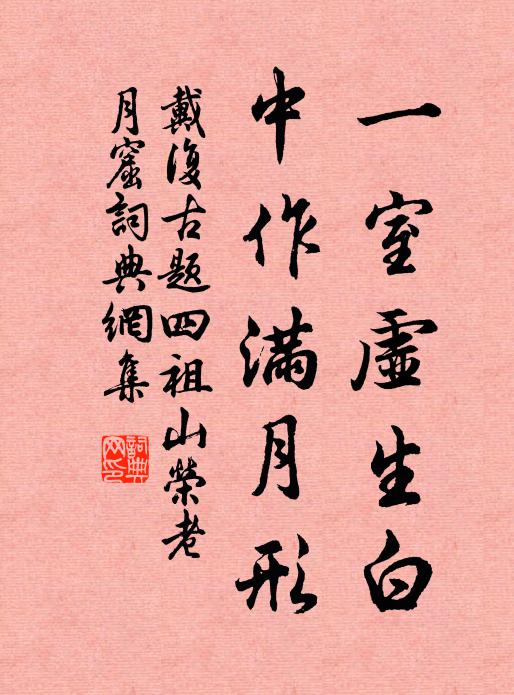 一室虛生白
中作滿月形
戴復古題四祖山榮老
月窟詞典網集
詞典
网印